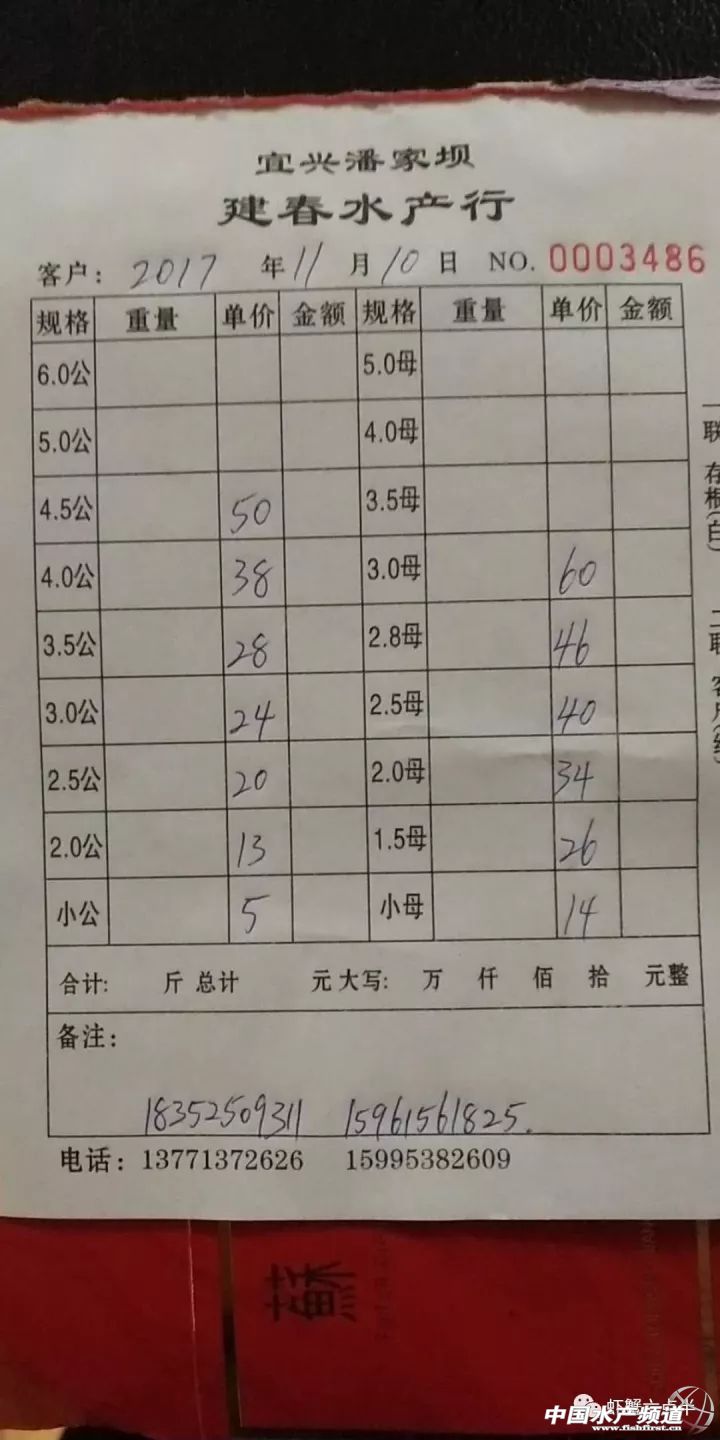 宜兴潘家坝
建春水产行
客户: 2017 年 11 月 10 日 NO. 0003486
规格 重量 单价 金额 规格 重量 单价 金额
6.0公 5.0母
5.0公 4.0母
4.5公 50 3.5母
4.0公 38 3.0母 60
3.5公 28 2.8母 46
3.0公 24 2.5母 40
2.5公 20 2.0母 34
2.0公 13 1.5母 26
小公 5 小母 14
合计: 斤 总计 元 大写: 万 仟 佰 拾 元整
备注:
18352509311 15961561825.
电话: 13771372626 15995382609
一联 存根(白) 二联 客户(红)
蘇
虾蟹六点半
中国水产频道
www.fishfirst.cn